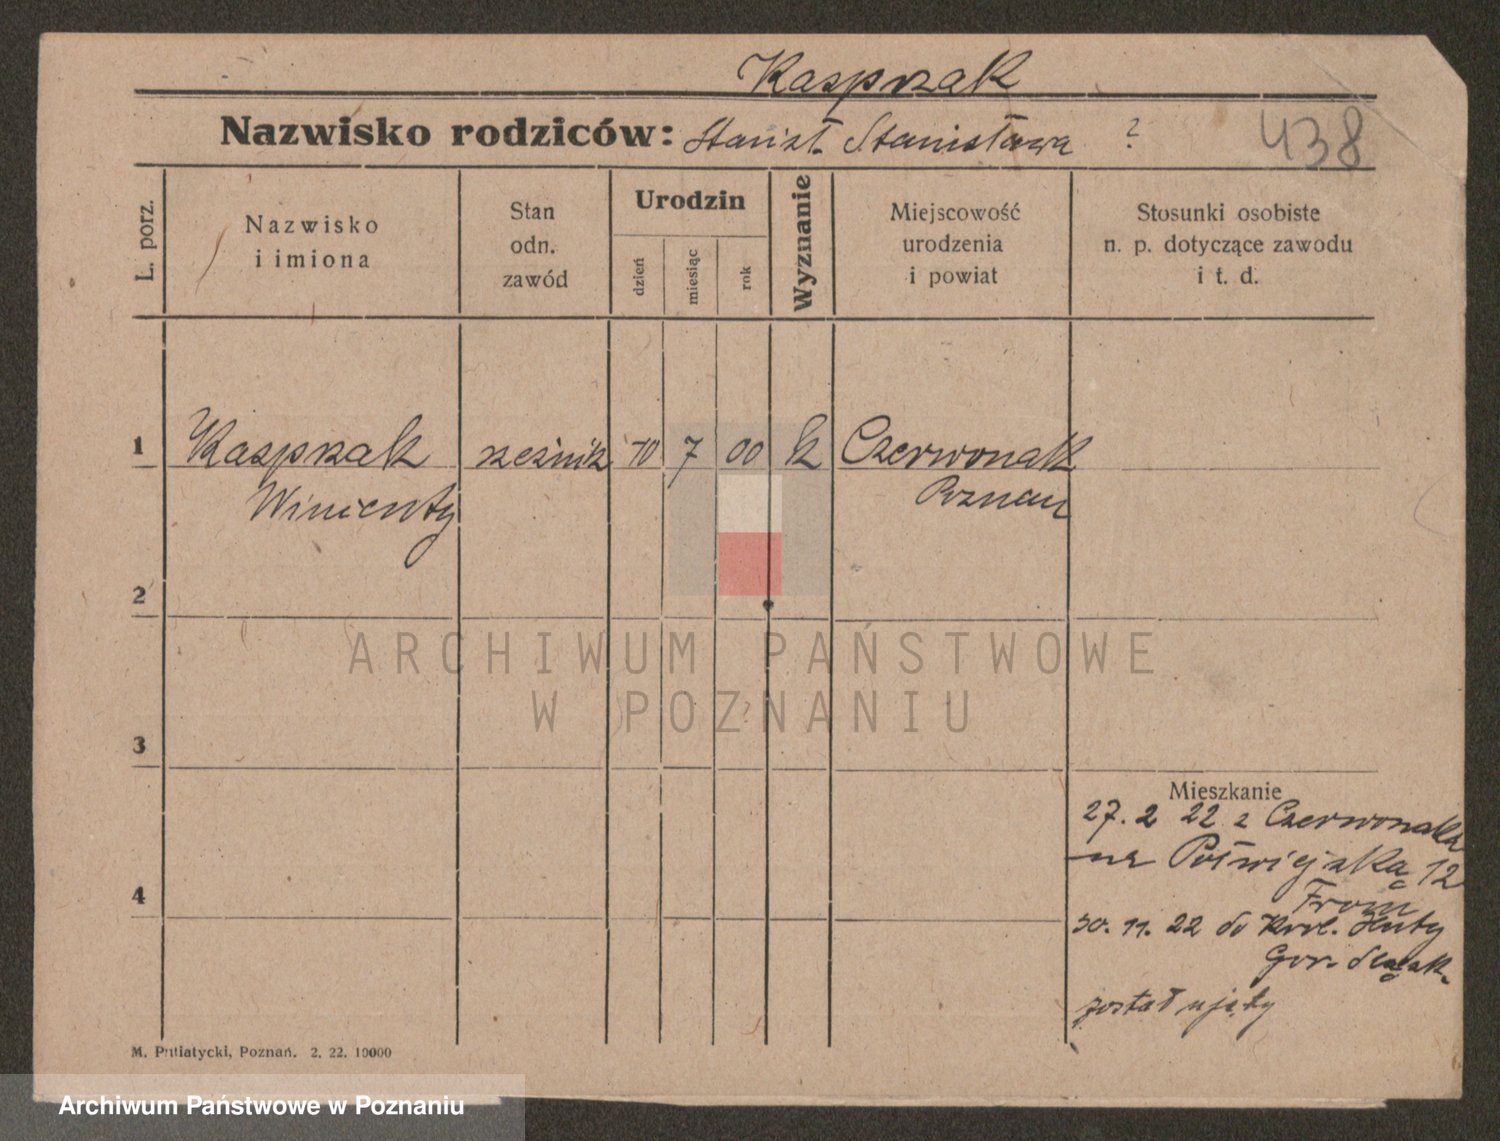 Kasprzak
Nazwisko rodziców: Stanisł. Stanisława ?
438
L. porz.
Nazwisko
i imiona
Stan
odn.
zawód
Urodzin
dzień
miesiąc
rok
Wyznanie
Miejscowość
urodzenia
i powiat
Stosunki osobiste
n. p. dotyczące zawodu
i t. d.
1 Kasprzak rzeźnik 10 7 00 k Czerwonak
Wincenty Poznan
2
ARCHIWUM PAŃSTWOWE
W POZNANIU
3
Mieszkanie
27. 2 22 z Czerwonaka
na Półwiejską 12
From
4
30. 11. 22 do Król. Huty
Gor. Sląsk.
został ujęty
M. Putiatycki, Poznań. 2. 22. 10000
Archiwum Państwowe w Poznaniu